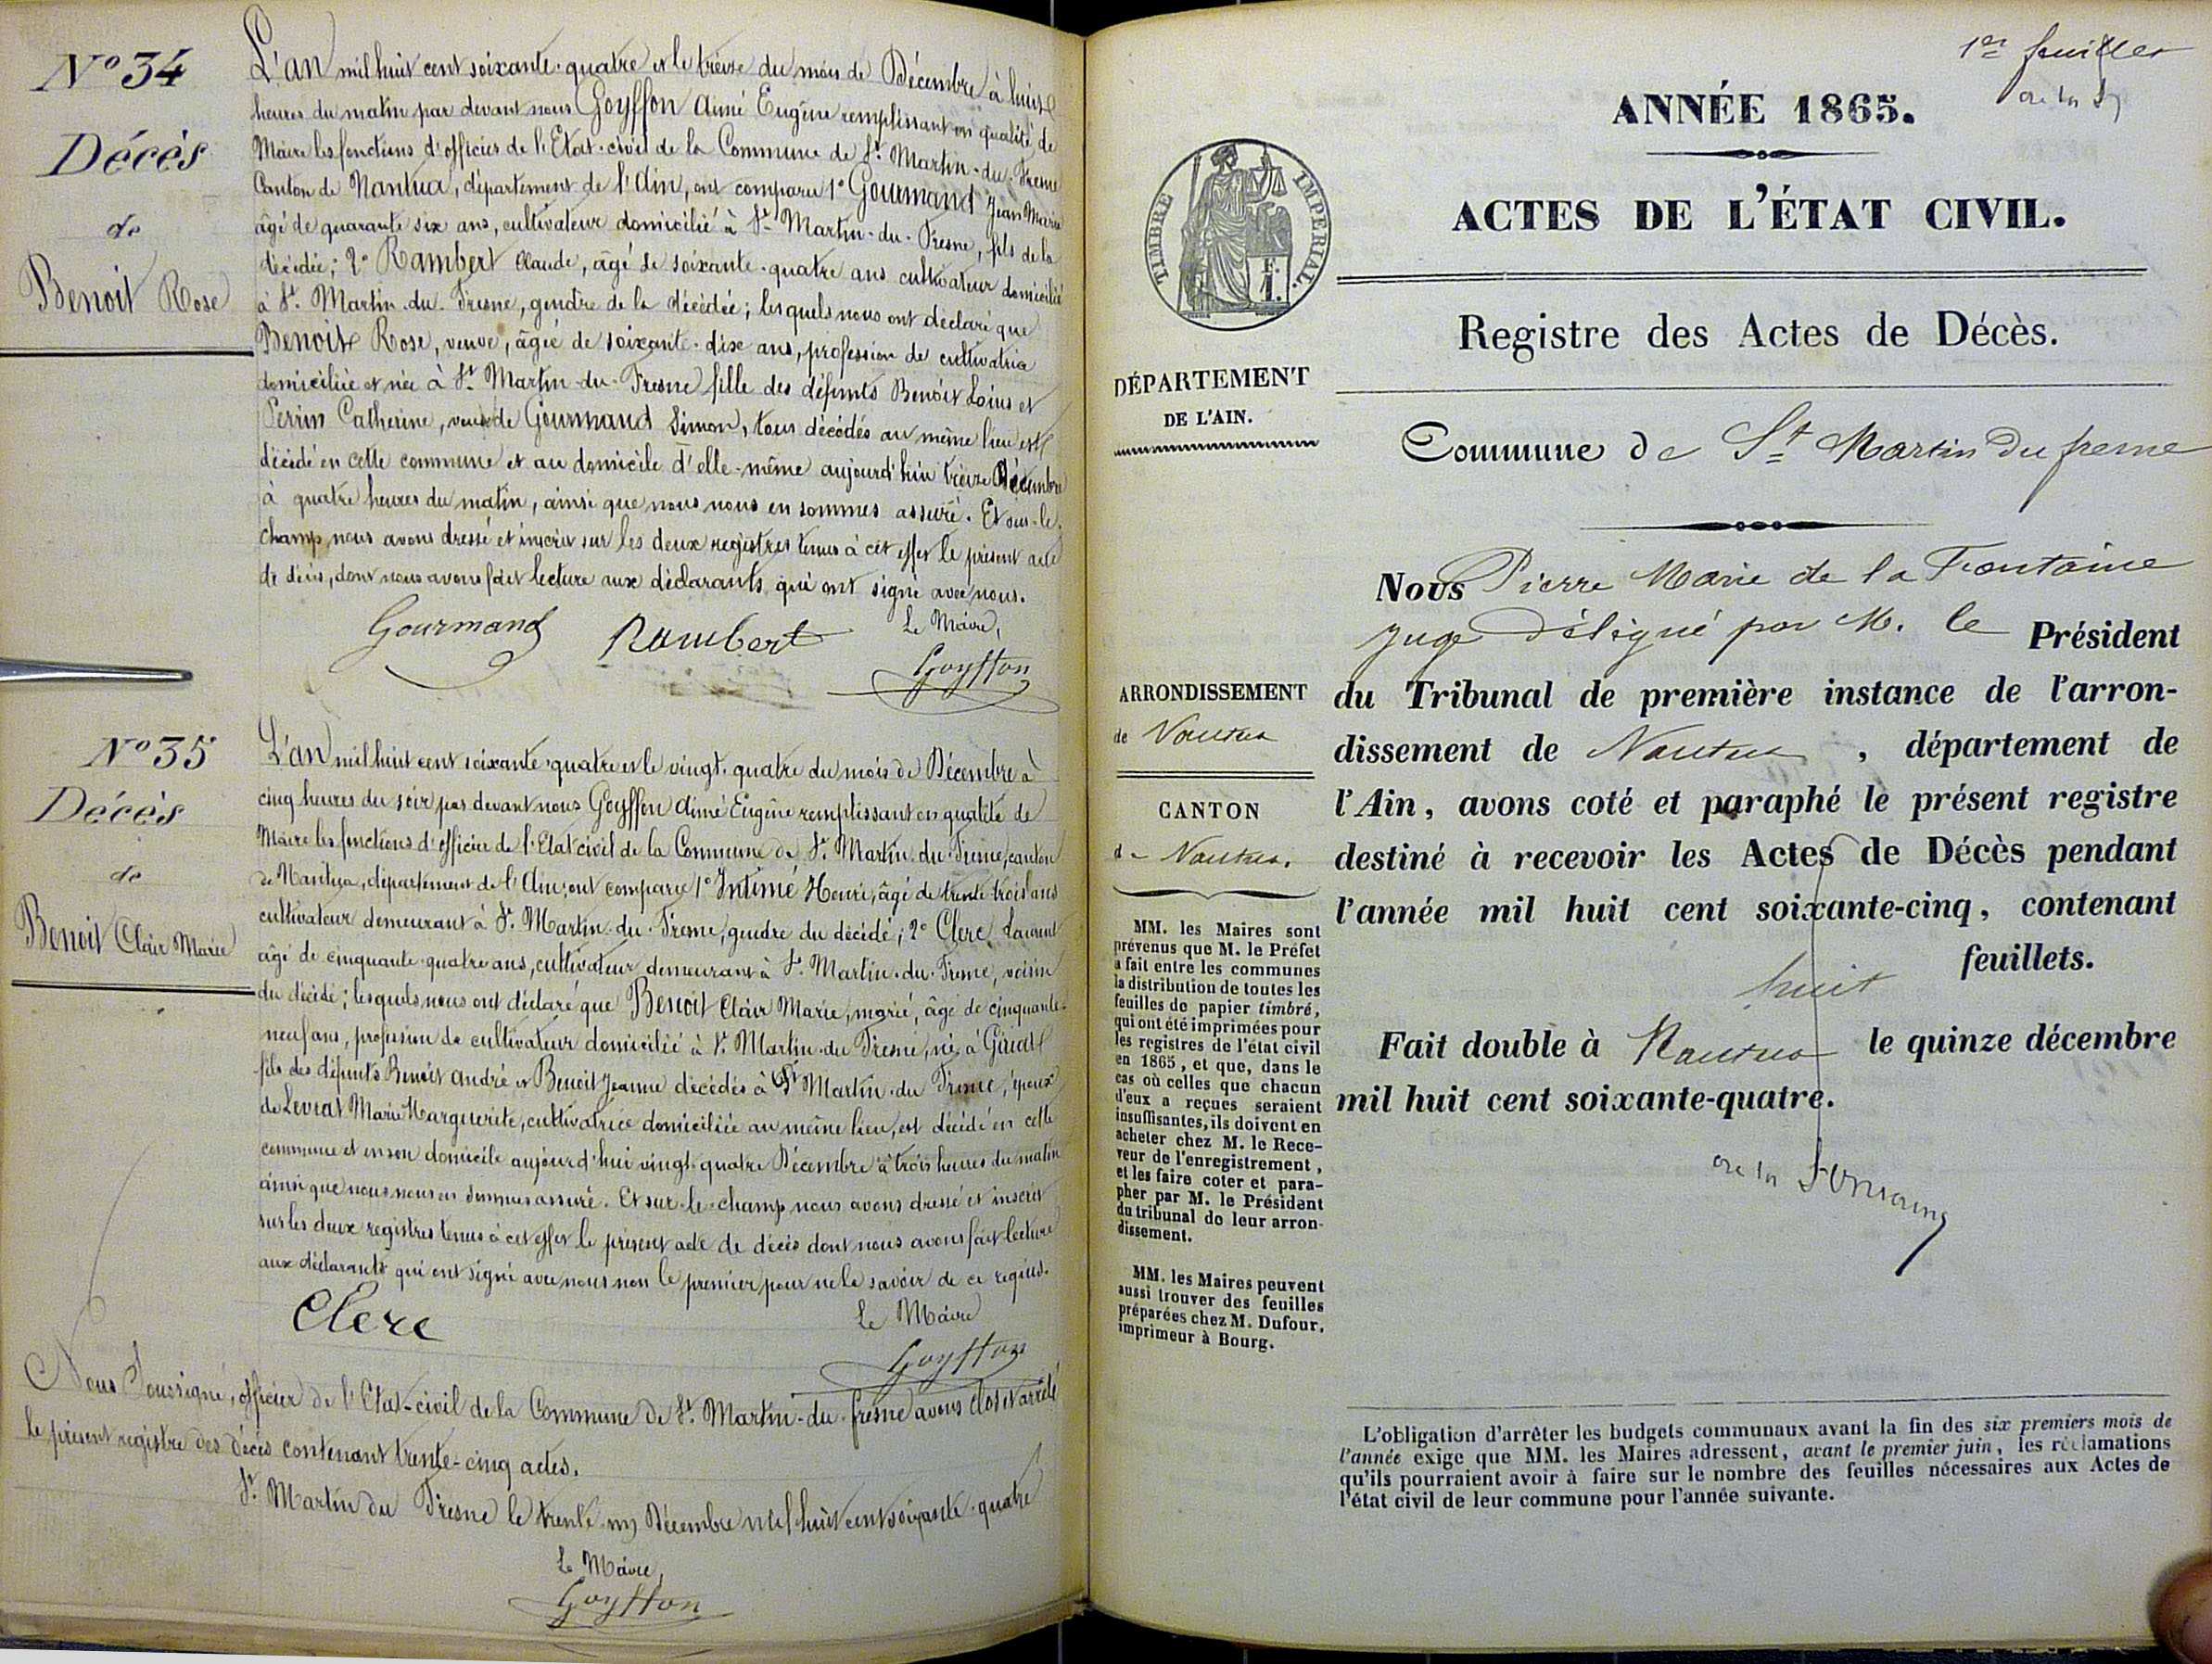 N.º 34
Décès
de
Benoit Rose
L'an mil huit cent soixante-quatre et le treize du mois de Décembre à huit
heures du matin par devant nous Goyffon Aimé Eugène remplissant en qualité de
Maire les fonctions d'officier de l'Etat-civil de la Commune de St. Martin-du-Fresne
Canton de Nantua, département de l'Ain, ont comparu 1º Gourmand Jean Marie
âgé de quarante six ans, cultivateur domicilié à St. Martin-du-Fresne, fils de la
décédée; 2º Rambert Claude, âgé de soixante-quatre ans cultivateur domicilié
à St. Martin-du-Fresne, gendre de la décédée; lesquels nous ont déclaré que
Benoit Rose, veuve, âgée de soixante-dix ans, profession de cultivatrice
domiciliée et née à St. Martin-du-Fresne fille des défunts Benoit Louis et
Perrin Catherine, veuve de Gourmand Simon, tous décédés au même lieu est
décédé en cette commune et au domicile d'elle-même aujourd'hui treize Décembre
à quatre heures du matin, ainsi que nous nous en sommes assuré. Et sur-le-
champ nous avons dressé et inscrit sur les deux registres tenus à cet effet le présent acte
de décès, dont nous avons fait lecture aux déclarants qui ont signé avec nous.
Gourmand Rambert Le Maire,
Goyffon
N.º 35
Décès
de
Benoit Clair Marie
L'an mil huit cent soixante-quatre et le vingt-quatre du mois de Décembre à
cinq heures du soir par devant nous Goyffon Aimé Eugène remplissant en qualité de
Maire les fonctions d'officier de l'Etat civil de la Commune de St. Martin-du-Fresne, canton
de Nantua, département de l'Ain, ont comparu 1º Intimé Henri, âgé de trente trois ans
cultivateur demeurant à St. Martin-du-Fresne, gendre du décédé; 2º Clerc Laurent
âgé de cinquante-quatre ans, cultivateur demeurant à St. Martin-du-Fresne, voisin
du décédé; lesquels nous ont déclaré que Benoit Clair Marie, marié, âgé de cinquante-
neuf ans, profession de cultivateur domicilié à St. Martin-du-Fresne, né à
fils des défunts Benoit André et Benoit Jeanne décédés à St Martin-du-Fresne, époux
de Levrat Marie Marguerite, cultivatrice domiciliée au même lieu, est décédé en cette
commune et en son domicile aujourd'hui vingt-quatre Décembre à trois heures du matin
ainsi que nous nous en sommes assuré. Et sur-le-champ nous avons dressé et inscrit
sur les deux registres tenus à cet effet le présent acte de décès dont nous avons fait lecture
aux déclarants qui ont signé avec nous non le premier pour ne le savoir de ce requis.
Clerc Le Maire
Goyffon
Nous Soussigné, officier de l'Etat-civil de la Commune de St. Martin-du-fresne avons clos et arrêté
le présent registre des décès contenant trente-cinq actes.
St. Martin du Fresne le trente-un Décembre mil huit cent soixante-quatre
Le Maire,
Goyffon
1er feuillet
ANNÉE 1865.
ACTES DE L'ÉTAT CIVIL.
TIMBRE IMPÉRIAL.
Registre des Actes de Décès.
DÉPARTEMENT
DE L'AIN.
Commune de St Martin Du fresne
Nous Pierre Marie de la Fontaine
juge délégué par M. le Président
du Tribunal de première instance de l'arron-
dissement de Nantua, département de
l'Ain, avons coté et paraphé le présent registre
destiné à recevoir les Actes de Décès pendant
l'année mil huit cent soixante-cinq, contenant
huit feuillets.
Fait double à Nantua le quinze décembre
mil huit cent soixante-quatre.
ARRONDISSEMENT
de Nantua
CANTON
de Nantua.
MM. les Maires sont
prévenus que M. le Préfet
a fait entre les communes
la distribution de toutes les
feuilles de papier timbré,
qui ont été imprimées pour
les registres de l'état civil
en 1865, et que, dans le
cas où celles que chacun
d'eux a reçues seraient
insuffisantes, ils doivent en
acheter chez M. le Rece-
veur de l'enregistrement,
et les faire coter et para-
pher par M. le Président
du tribunal de leur arron-
dissement.
MM. les Maires peuvent
aussi trouver des feuilles
préparées chez M. Dufour,
imprimeur à Bourg.
L'obligation d'arrêter les budgets communaux avant la fin des six premiers mois de
l'année exige que MM. les Maires adressent, avant le premier juin, les réclamations
qu'ils pourraient avoir à faire sur le nombre des feuilles nécessaires aux Actes de
l'état civil de leur commune pour l'année suivante.